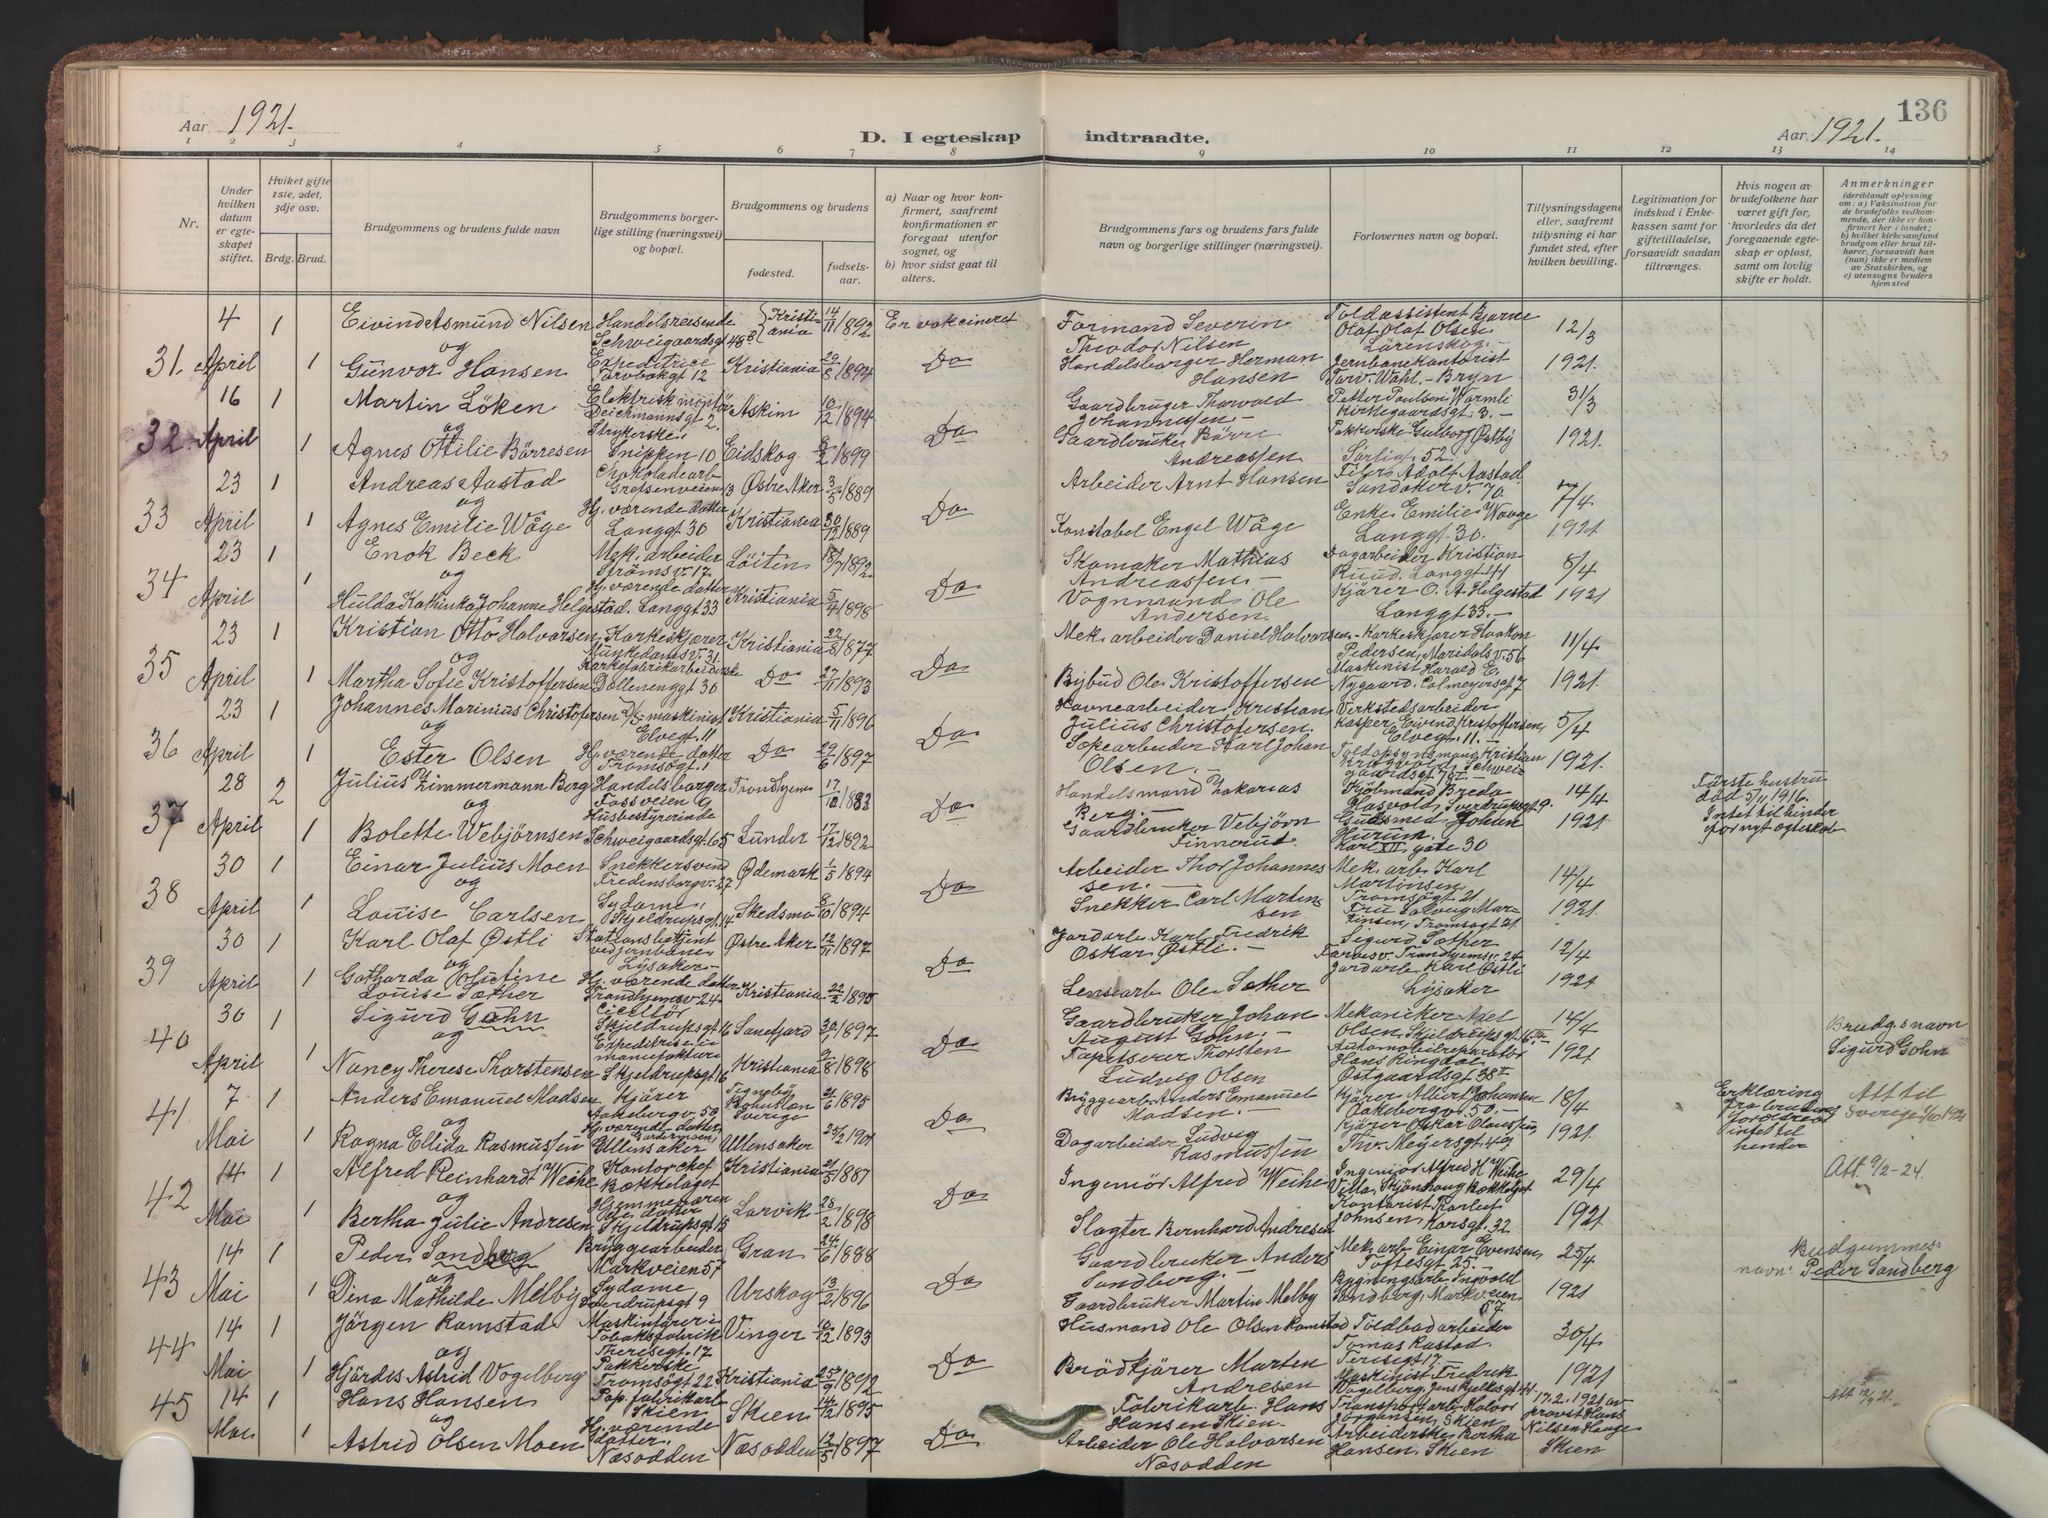 Aar 1921.
D. I egteskap indtraadte.
Aar 1921.
136
1 2 3 4 5 6 7 8 9 10 11 12 13 14
Nr.
Under hvilken datum er egteskapet stiftet.
Hviket gifte 1ste, 2det, 3dje osv.
Brdg. Brud.
Brudgommens og brudens fulde navn
Brudgommens borgerlige stilling (næringsvei) og bopæl.
Brudgommens og brudens
fødested.
fødselsaar.
a) Naar og hvor konfirmert, saafremt konfirmationen er foregaat utenfor sognet, og
b) hvor sidst gaat til alters.
Brudgommens fars og brudens fars fulde navn og borgerlige stillinger (næringsvei).
Forlovernes navn og bopæl.
Tillysningsdagene eller, saafremt tillysning ei har fundet sted, efter hvilken bevilling.
Legitimation for indskud i Enkekassen samt for giftetilladelse, forsaavidt saadan tiltrænges.
Hvis nogen av brudefolkene har været gift før, hvorledes da det foregaaende egteskap er opløst, samt om lovlig skifte er holdt.
Anmerkninger (deriblandt oplysning om: a) Vaksination for de brudefolks vedkommende, der ikke er konfirmert her i landet; b) hvilket kirkesamfund brudgom eller brud tilhører, forsaavidt han (hun) ikke er medlem av Statskirken, og c) utensogns bruders hjemsted
31. 4 April 1 Eivind Asmund Nilsen Handelsreisende Schweigaardsgt 48 B Kristiania 14/11 1892 Er vakcineret Formand Severin Theodor Nilsen Toldassistent Bjarne Olaf Olsen Lörenskog 12/3
og
1 Gunvor Hansen Expeditrice Kristiania 29/8 1894 Do Handelsborger Herman Hansen Jernbanekontorist Wahl. - Bryn 1921.
32. 16 April 1 Martin Löken Elektrisk montör Deichmannsgt 2. Askim 10/12 1894 Gaardbruger Thorvald Johannessen. Petter Paulsen Warmli Kirkegaardsgt. 3. 31/3
og
1 Agnes Ottilie Börresen Strykerske Snippen 10 Eidskog 1899 Do Gaardbruker Börre Andreassen Pakkerske Gulborg Östby 52. 1921.
33 23 April 1 Andreas Aastad Chokoladearb Grefsenveien 3 Østre Aker 3/5 1889 Arbeider Arnt Hansen Filer Adolf Aastad Sandakerv. 70. 7/4
og
1 Agnes Emilie Wåge Hj. værende datter Langgt 30 Kristiania 30/12 1889 Do Konstabel Engel Wåge Enke Emilie Waage Langgt 30. 1921
34 23 April 1 Enok Beck Mek. arbeider Strömsv. 17 Löiten 18/7 1892 Skomaker Mathias Andreassen. Dagarbeider Kristian Ruud. Langgt 41 8/4
og
1 Hulda Kathinka Johanne Helgestad Hj. værende datter Langgt 33 Kristiania 5/4 1898 Do Vognmand Ole Andersen. Kjörer O. A. Helgestad Langgt 33. 1921
35 23 April 1 Kristian Otto Halvorsen Korkeskjærer Munkedamsv. 31 Kristiania 22/8 1877 Mek. arbeider Daniel Halvorsen Korkeskjærer Haakon Pedersen, Maridalsv. 56 11/4
og
1 Martha Sofie Kristoffersen Korkefabrikarbeiderske Dællenenggt 30 Do 27/11 1893 Do Bybud Ole Kristoffersen Maskinist Harald E. Nygaard. Calmeyersgt 7 1921.
36 23 April 1 Johannes Marinius Christofersen D/S maskinist Elvegt. 11 Kristiania 5/11 1896 Havnearbeider Kristian Julius Christofersen. Verkstedsarbeider Kasper Eivind Kristoffersen, Elvegt. 11. 5/4
og
1 Ester Olsen Hj. værende datter Tromsögt. 1 Do 29/6 1897 Do Sæpearbeider Karl Johan Olsen. Toldopsynsmand Kristian 1921.
37 28 April 2 Julius Zimmermann Berg Handelsborger Fossveien 9 Trondhjem 17/10 1882 Handelsmand Zakarias Berg. Kjöbmand Breda Hasvold, Sverdrupsgt 9. 14/4 Förste hustru död 5/11 1916. Intet til hinder for nyt egteskab
og
1 Bolette Webjörnsen Husbestyrerinde Schweigaardsgt 65 Lunder 17/12 1892 Do Gaardbruker Vebjörn Finnerud Gulsmed Johan Hurum. Karl XII gate 30 1921.
38 30 April 1 Einar Julius Moen Snekkersvend Fredensborgv. 27 Ødemark 1/5 1894 Arbeider Thor Johannessen. Mek. arb. Karl Martinsen Tromsögt 21. 14/4
og
1 Louise Carlsen Sydame, Skjeldrupsgt. 14 Skedsmo 8/10 1894 Do Snekker Carl Martensen Fru Solveig Martinsen, Tromsögt 21. 1921.
39 30 April 1 Karl Olaf Østli Stationsbetjent ved jernbanen Lysaker Østre Aker 12/11 1897 Jordarb. Karl Fredrik Oskar Østli. Sigurd Sæther Trondhjemsv. 24 12/4
og
1 Gotharda Olutine Louise Sæther Hj. værende datter Trondhjemsv. 24 Kristiania 22/2 1895 Do Lensearb Ole Sæther Jordarb. Karl Østli Lysaker 1921
40 30 April 1 Sigurd Gohn Ciselör Skjeldrupsgt 16 Sandefjord 30/1 1897 Gaardbruker Johan August Gohn. Mekaniker Axel Olsen, Skjeldrupsgt. 16 14/4 Brudg.s navn Sigurd Gohn
og
1 Nancy Therese Thorstensen Expeditrise i manufaktur Skjeldrupsgt 16 Kristiania 9/8 1898 Do Tapetserer Thorsten Ludvig Olsen Automobilreparatör Hans Ringdal Østgaardsgt 38 II 1921.
41 7 Mai 1 Anders Emanuel Madsen Kjörer Aakebergv. 50 Bohuslen Sverige 21/6 1895 Bryggearb. Anders Emanuel Madsen. Kjörer Albert Johansen Aakebergv. 50. 18/4 Erklæring fra brudens forældre intet til hender Att til Sverige 1/10 1921
og
1 Ragna Ellida Rasmussen Hj. værende datter, Gardermoen Ullensaker Ullensaker 25/2 1901 Do Dagarbeider Ludvig Rasmussen Kjörer Oskar Olaussen Th. Meyersgt. 49 1921.
42 14 Mai 1 Alfred Reinhardt Weihe Kontorchef Bækkelaget Kristiania 21/5 1887 Ingeniör Alfred Weihe Ingeniör Alfred H Weihe Villa Skjönhaug Bækkelaget 29/4 Att. 9/2-24.
og
1 Bertha Julie Andresen Hjemmeværende datter Skjeldrupsgt 15 Larvik 28/2 1898 Do Slagter Bernhard Andresen Kontorist Karleif Johnsen, Korsgt. 32 1921.
43 14 Mai 1 Peder Sandberg Bryggearbeider Markveien 57 Gran 24/6 1888 Gaardbruker Anders Sandberg. Mek. arb. Einar Evensen, Toftesgt 25. 25/4 Budgummes navn: Peder Sandberg
og
1 Dina Mathilde Melby Sydame Sverdrupsgt 9 Urskog 13/2 1896 Do Gaardbruker Martin Melby Bygningsarb. Ingvald Sandberg, Markveien 57. 1921
44 14 Mai 1 Jörgen Ramstad Maskinförer i Tobaksfabrik Theresegt. 17 Vinger 10/12 1893 Husmand Ole Olsen Ramstad Toldbodarbeider Tomas Rastad. Teresegt 17. 30/4
og
1 Hjördes Astrid Vogelberg Pakkerske Tromsögt 22 Kristiania 25/9 1892 Do Brödkjörer Marten Andresen Maskinist Fredrik Vogelberg, Jens Bjelkesgt 41 1921
45 14 Mai 1 Hans Hansen Pap. fabrikarb Skien Skien 14/12 1895 Fabrikarb. Hans Hansen Skien. Transportarb. Halvor Jörgensen, Skien 17. 2. 1921 av provst Hans Nilsen Hauge Skien Att 12/7 21.
og
1 Astrid Olsen Moen Hj. værende datter. Næsodden Næsodden 12/5 1897 Do Arbeider Ole Halvorsen Næsodden Arbeiderske Bertha Hansen, Skien